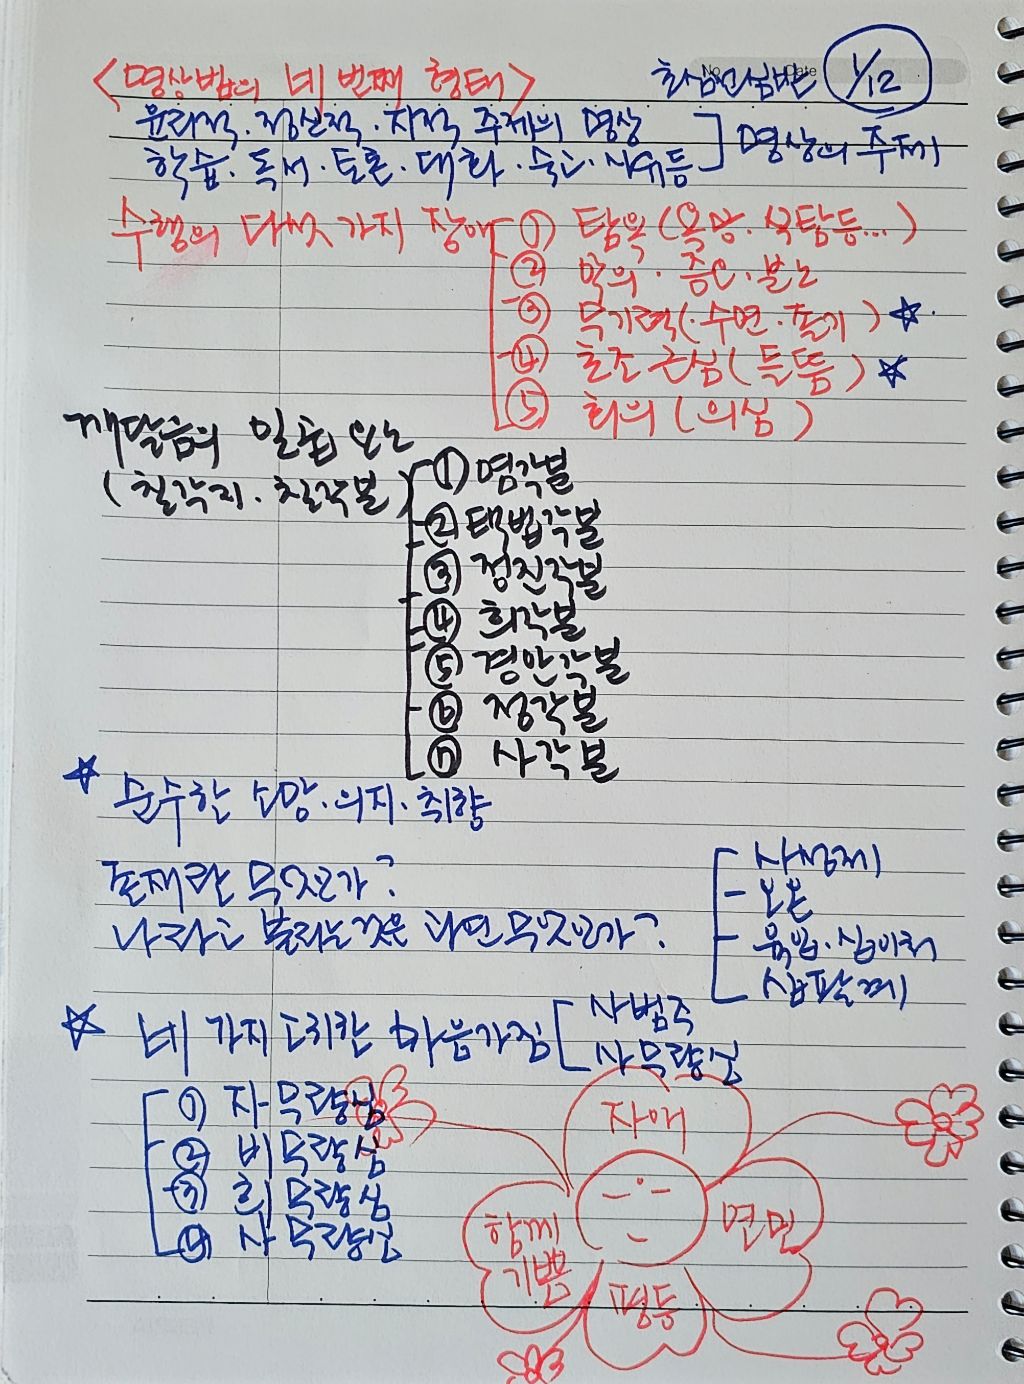 <명상법의 네 번째 형태>
No. Date
1/12
윤리적·정신적·지적 주제의 명상
학습·독서·토론·대화·숙고·사유등
명상의 주제
수행의 다섯 가지 장애
① 탐욕(욕망·식탐등...)
② 악의·증오·분노
③ 무기력(·수면·졸기)☆·
④ 초조 근심(들뜸)☆
⑤ 회의(의심)
깨달음의 일곱 요소
(칠각지·칠각분)
① 염각분
② 택법각분
③ 정진각분
④ 희각분
⑤ 경안각분
⑥ 정각분
⑦ 사각분
☆ 순수한 소망·의지·취향
존재란 무엇인가?
나라고 불리는것은 과연 무엇인가?
사성제
오온
육입·십이처
십팔계
☆ 네 가지 도리칸 마음가짐
사범주
사무량심
① 자무량심
② 비무량심
③ 희무량심
④ 사무량심
자애
함께
기쁨
연민
평등